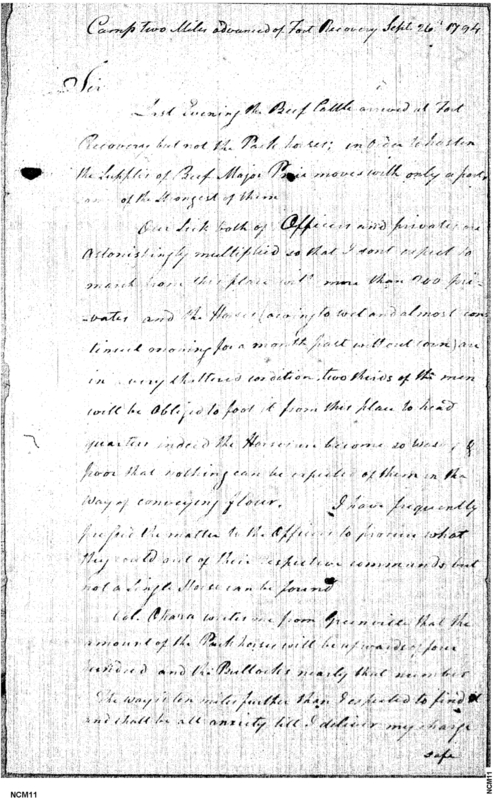 Camp two Miles advanced of Fort Recovery Sept. 26. 1794
Sir
Last Evening the Beef Cattle arrived at Fort
Recovery but not the Pack horses; in Order to hasten
the Supplies of Beef Major Price moves with only a part
of the Strongest of them
Our Sick both of Officers and privates are
astonishingly multiplied so that I don't expect to
march from this place with more than 200 pri-
-vates and the Horses (owing to wet and almost con-
tinued moving for a month past without corn) are
in a very shattered condition two thirds of the men
will be Obliged to foot it from this place to head
quarters indeed the Horses are become so weak &
poor that nothing can be expected of them in the
way of conveying flour. I have frequently
pressed the matter to the Officers to procure what
they could out of their respective commands but
not a Single Horse can be found
Col. Ohara writes me from Greenville that the
amount of the Pack horses will be upwards of four
hundred and the Bullocks nearly that number
The way is ten miles further than I expected to find it
and shall be all anxiety till I deliver my charge
safe
NCM11
NCM11